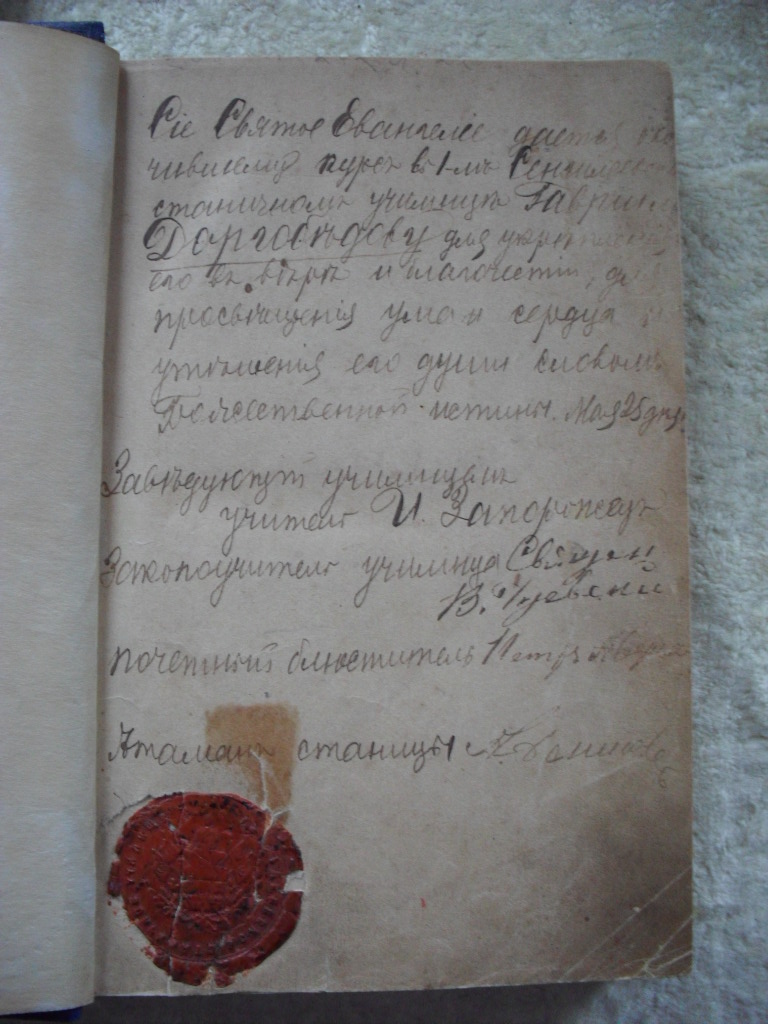 Сіе Святое Евангеліе дается око
чившему курсъ въ 1-мъ
станичномъ училищѣ Гаврiи
Доргобѣдову для укрѣпленія
его въ вѣрѣ и благочестіи, для
просвѣщенія ума и сердца и
утѣшенія его души словомъ
Божественной истины. Мая 25 дня
Завѣдующій училищемъ
учитель И. Запорожецъ
Законоучитель училища Священ
В.
почетный блюститель Петръ
Атаманъ станицы